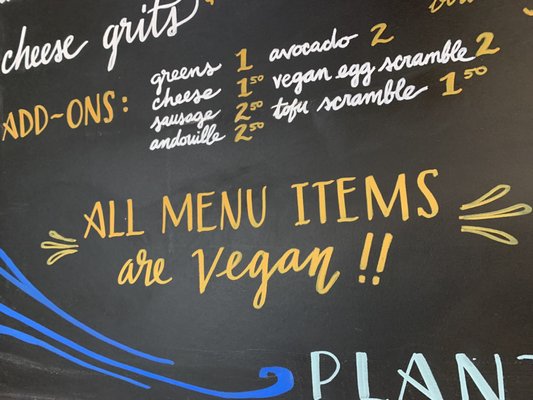 cheese grits
ADD-ONS:
greens 1
cheese 1.50
sausage 2.50
andouille 2.50
avocado 2
vegan egg scramble 2
tofu scramble 1.50
ALL MENU ITEMS
are Vegan!!
PLANT